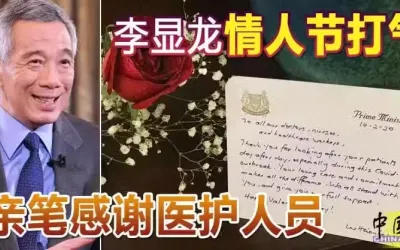 李显龙情人节打气
Prime Minister
14·2·20
To all our doctors, nurses
and healthcare workers,
Thank you for looking after your patients
day after day, especially during this Covid
outbreak. Your loving care and
makes all the difference.
you, and give you full support
亲笔感谢医护人员
中
CHINA